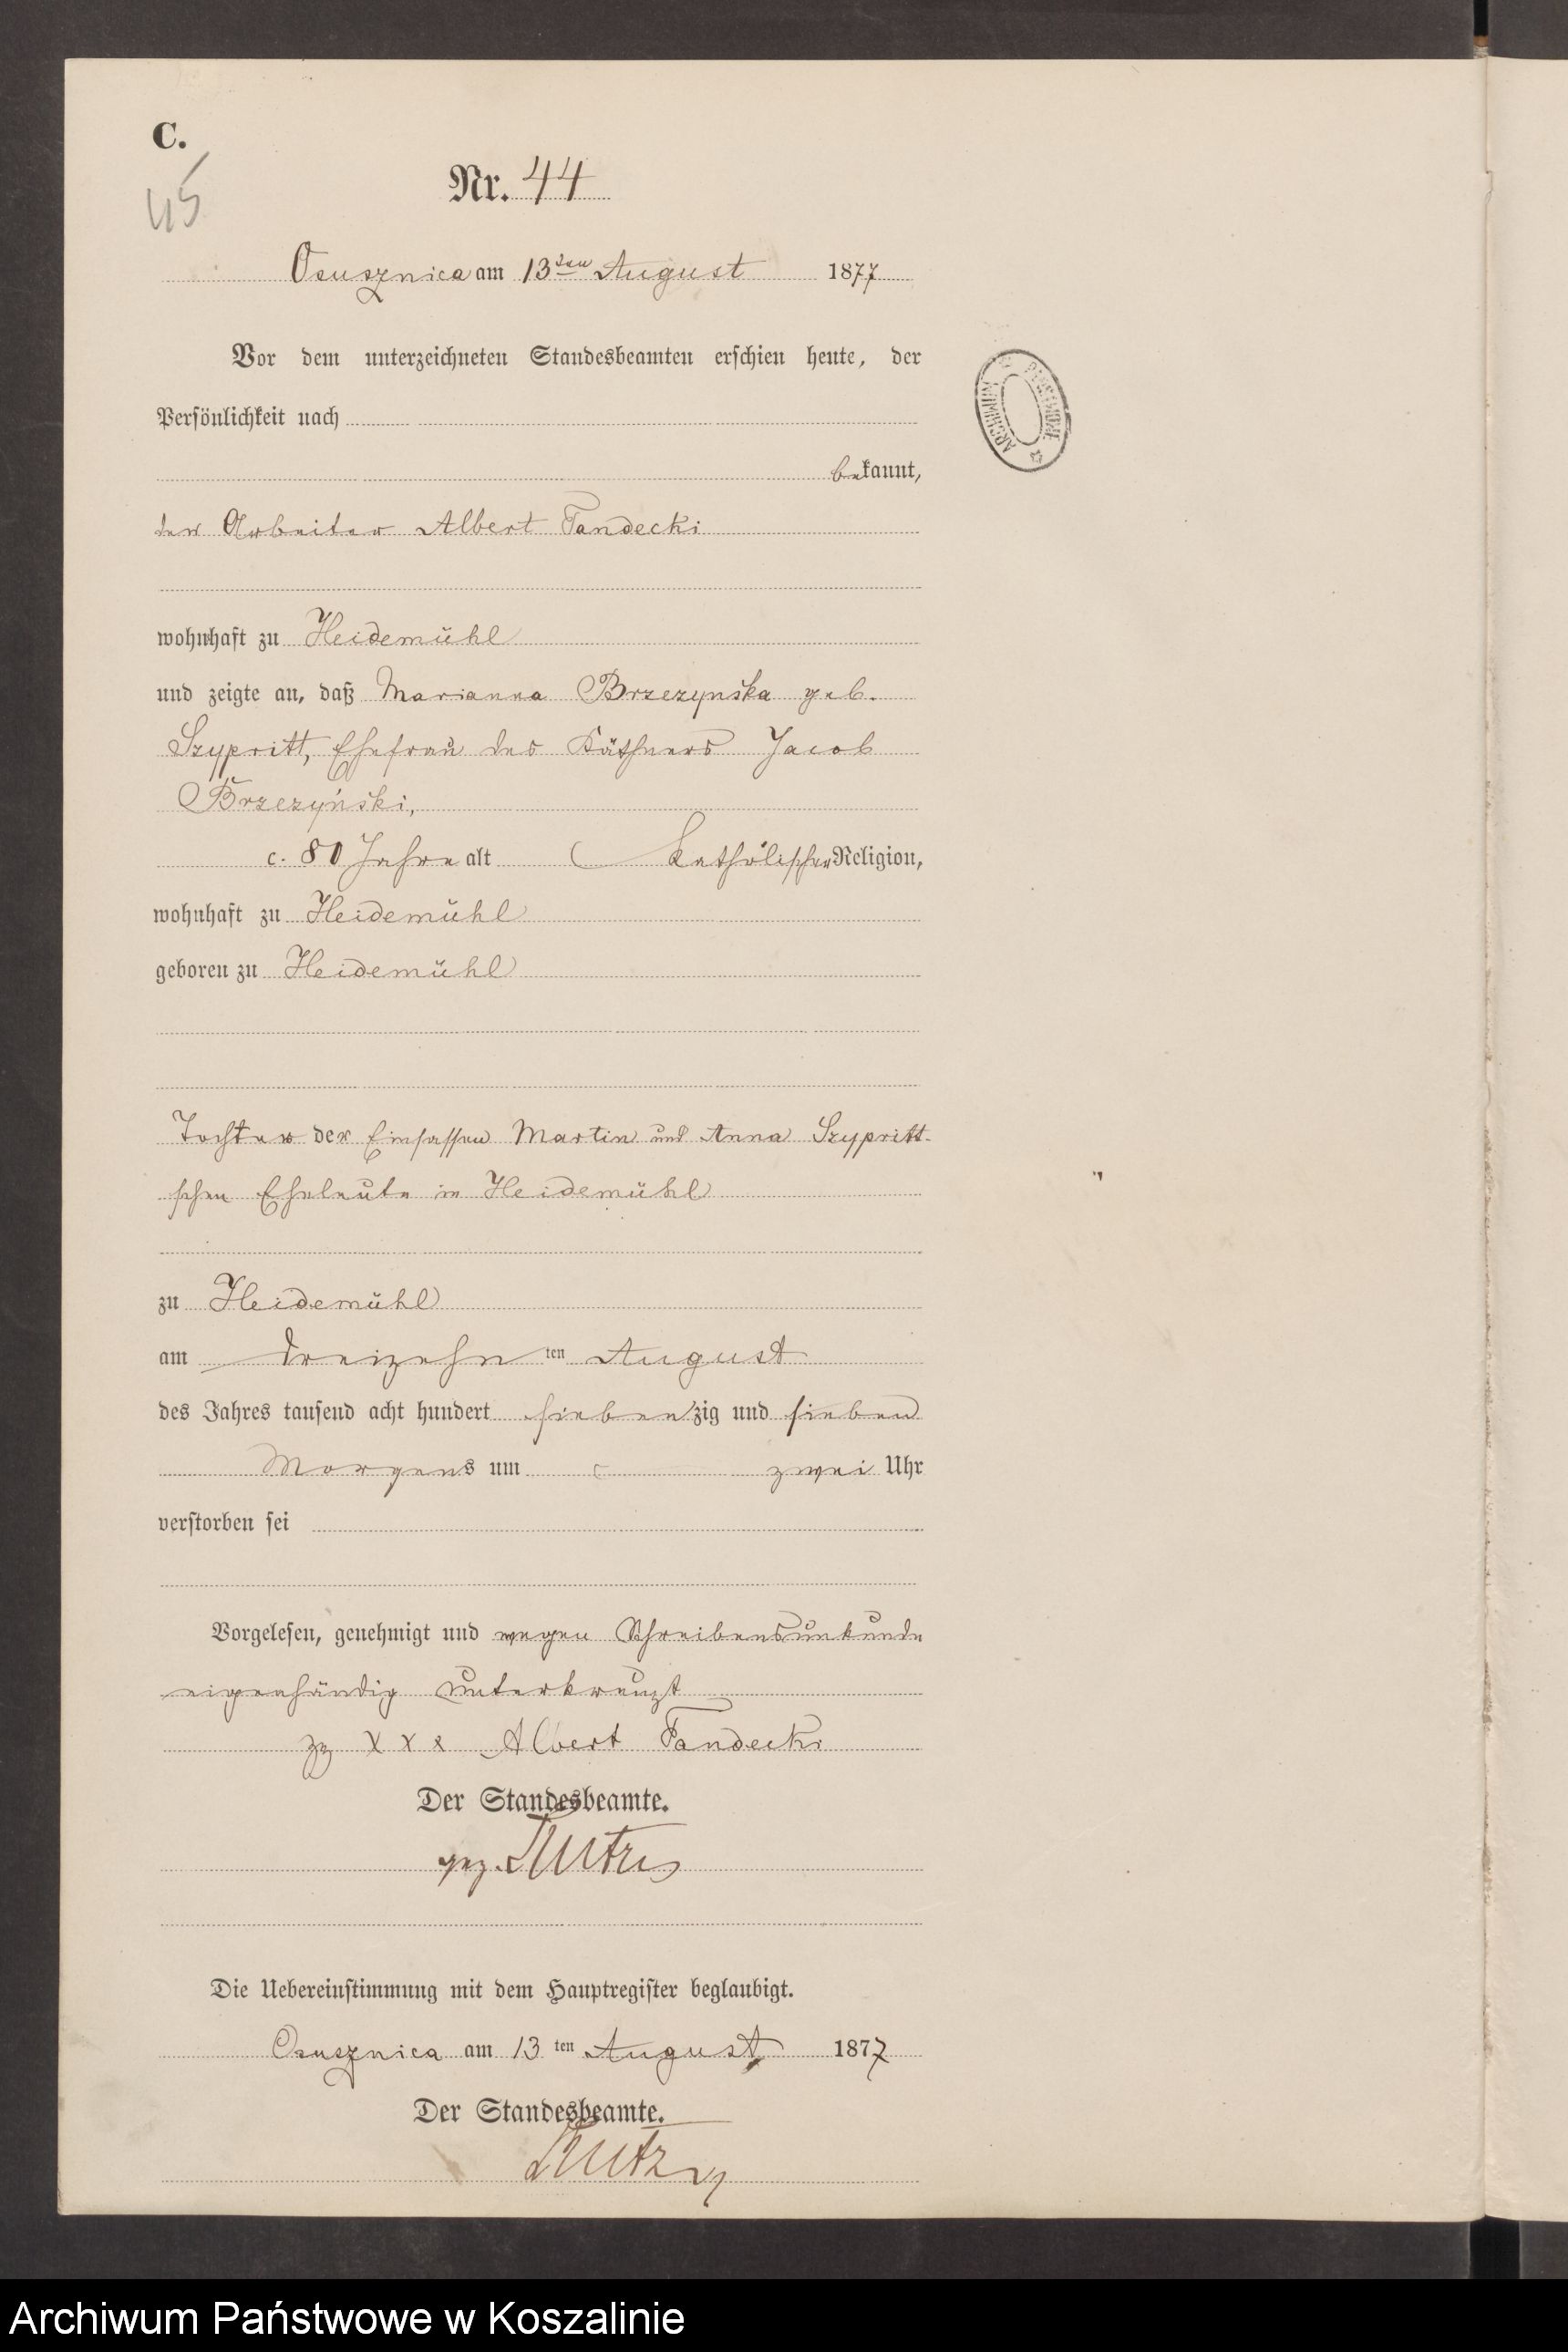 C.
45
Nr. 44
Osusznica am 13ten August 1877
Vor dem unterzeichneten Standesbeamten erschien heute, der
Persönlichkeit nach
bekannt,
der Arbeiter Albert Fandecki
wohnhaft zu Heidemühl
und zeigte an, daß Marianna Brzezynska geb.
Szypritt, Ehefrau des Käthners Jacob
Brzezyński,
c. 80 Jahre alt katholischer Religion,
wohnhaft zu Heidemühl
geboren zu Heidemühl
Tochter der Einsassen Martin und Anna Szypritt-
schen Eheleute in Heidemühl
zu Heidemühl
am dreizehn ten August
des Jahres tausend acht hundert siebenzig und sieben
Morgens um zwei Uhr
verstorben sei
Vorgelesen, genehmigt und wegen Schreibensunkunde
eigenhändig unterkreuzt
xxx Albert Fandecki
Der Standesbeamte.
gez.
Die Uebereinstimmung mit dem Hauptregister beglaubigt.
Osusznica am 13 ten August 1877
Der Standesbeamte.
Archiwum Państwowe w Koszalinie